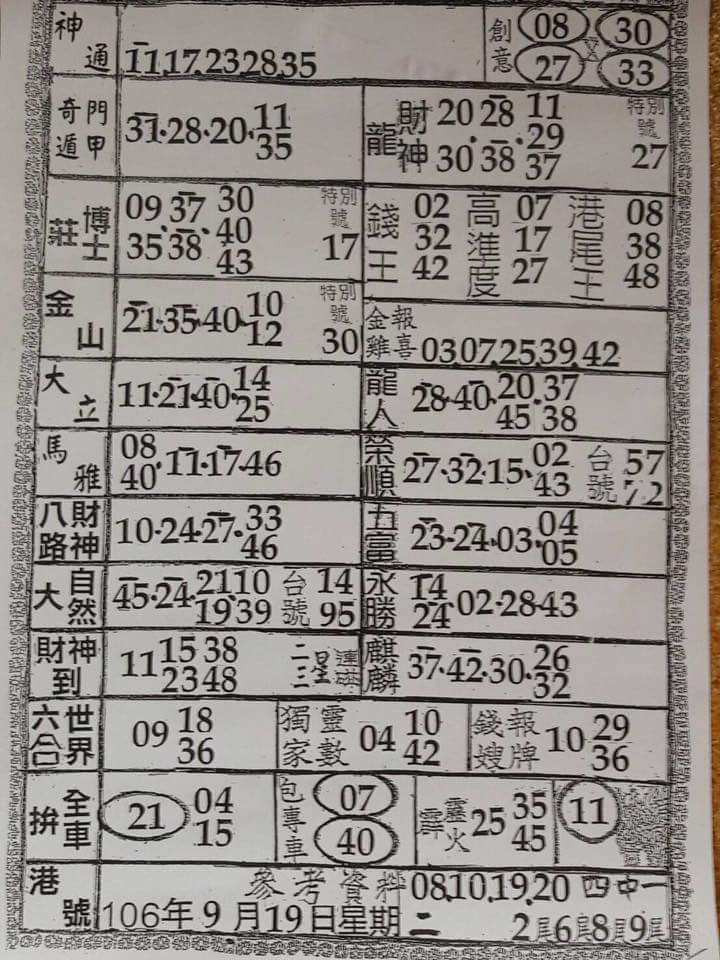 神通 11,17,23,28,35 創意 08 30 27 33
奇門遁甲 31·28·20·11 35
龍 財神 20·28·11 29 30·38·37 特別號 27
莊博士 09·37·30 40 35·38·43 特別號 17
錢王 02 32 42 高進度 07 17 27 港尾王 08 38 48
金山 21·35·40·10 12 特別號 30
金雞報喜 03,07,25,39,42
大立 11·21·40·14 25
龍人 28·40·20·37 45·38
馬雅 08 40·11·17·46
榮順 27·32·15·02 43 台號 57 72
八路財神 10·24·27·33 46
五富 23·24·03·04 05
大自然 45·24·21·10 19·39 台號 14 95
永勝 14 24·02·28·43
財神到 11 15·38 23·48 二三星連碰
麒麟 37·42·30·26 32
六合世界 09 18 36
獨家靈數 04 10 42
錢嫂報牌 10 29 36
拚全車 21 04 15
包專車 07 40
霹靂火 25 35 45
11
港號 參考資料 08,10,19,20 四中一
106年9月19日星期二 2尾6尾8尾9尾